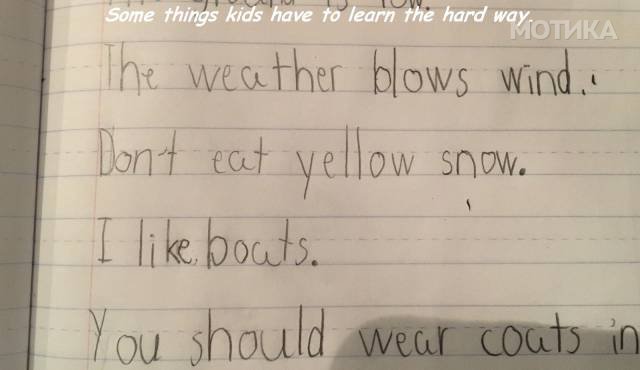 Some things kids have to learn the hard way.
МОТИКА
The weather blows wind.
Don't eat yellow snow.
I like boats.
You should wear coats in